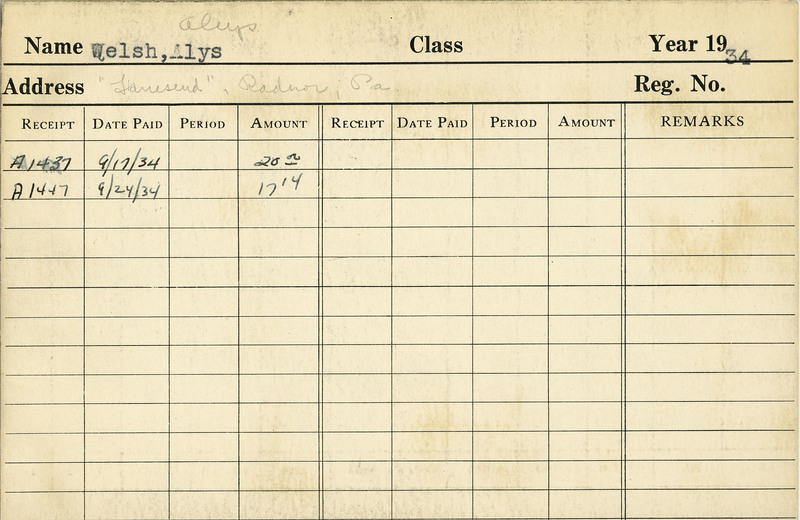 Alys
Name Welsh, Alys Class Year 19 34
Address "Lanesend", Radnor, Pa Reg. No.
RECEIPT DATE PAID PERIOD AMOUNT RECEIPT DATE PAID PERIOD AMOUNT REMARKS
A1437 9/17/34 20 00
A1447 9/24/34 17 14